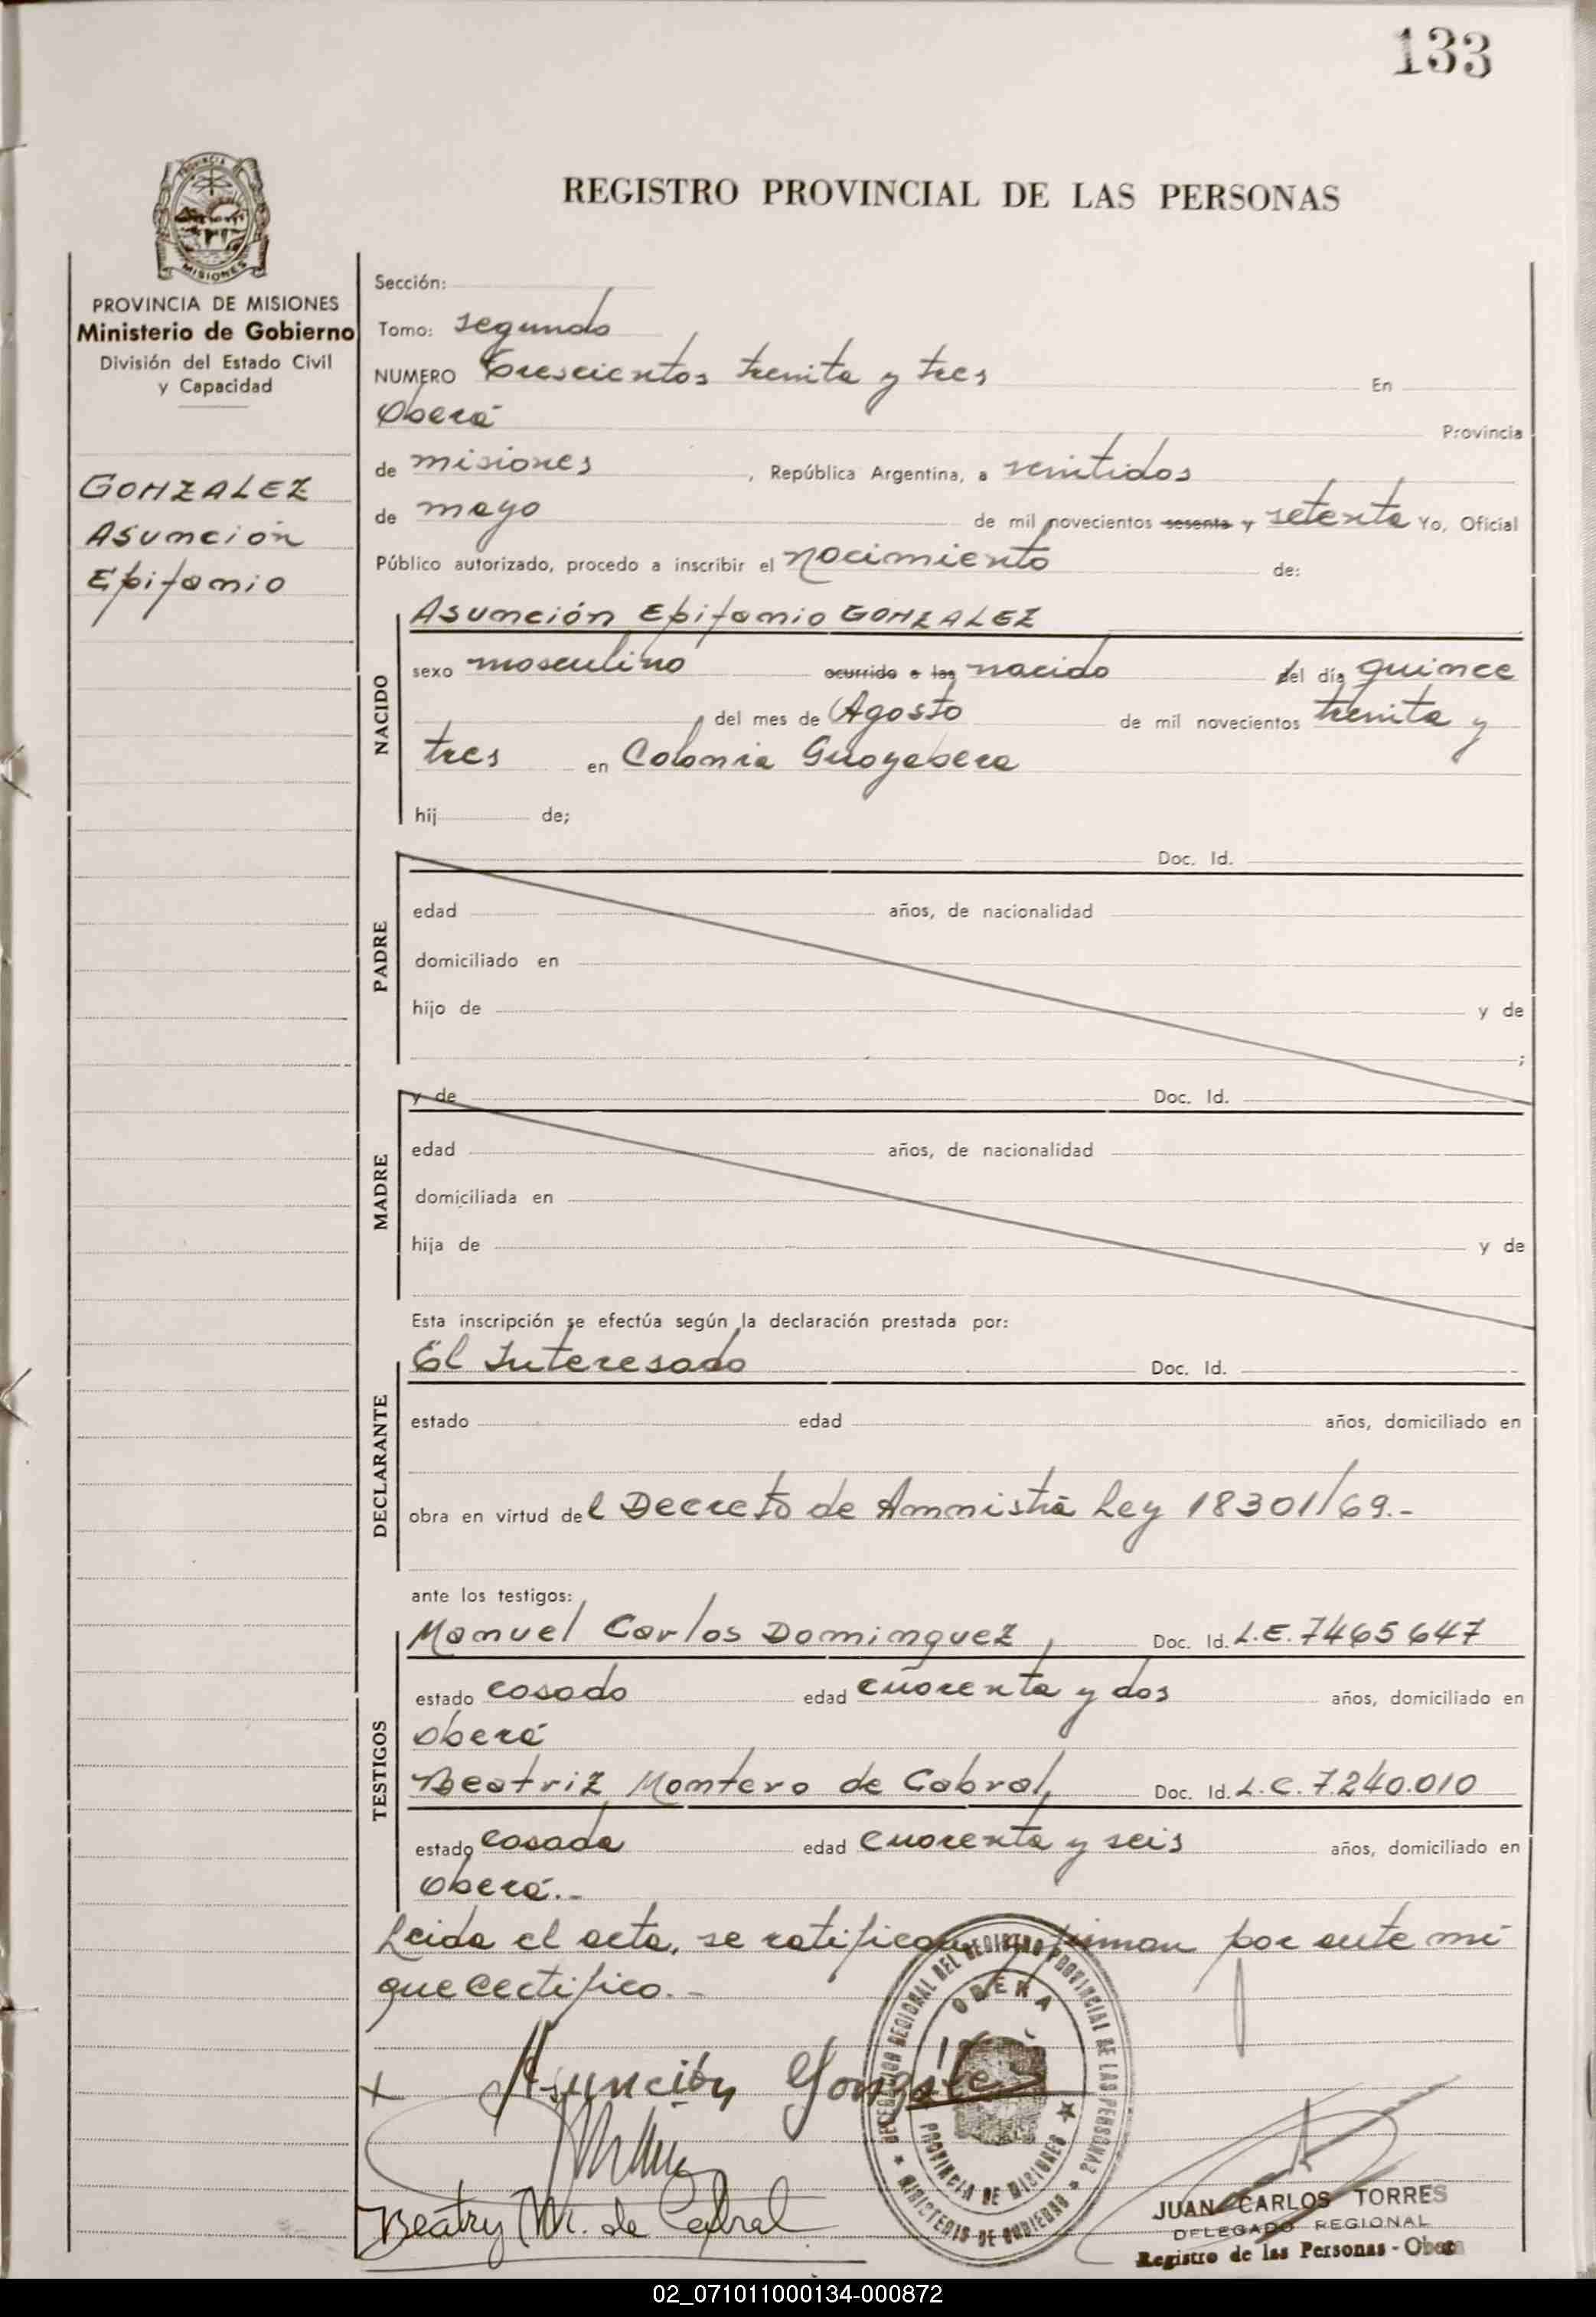 133
PROVINCIA
MISIONES
REGISTRO PROVINCIAL DE LAS PERSONAS
PROVINCIA DE MISIONES
Ministerio de Gobierno
División del Estado Civil
y Capacidad
GONZALEZ
Asunción
Epifanio
Sección:
Tomo: segundo
NUMERO Trescientos treinta y tres En
Oberá Provincia
de misiones , República Argentina, a veintidos
de mayo de mil novecientos sesenta y setenta Yo, Oficial
Público autorizado, procedo a inscribir el nacimiento de:
NACIDO
Asunción Epifanio GONZALEZ
sexo masculino ocurrido a las nacido del día quince
del mes de Agosto de mil novecientos treinta y
tres en Colonia Guayabera
hij de;
PADRE
Doc. Id.
edad años, de nacionalidad
domiciliado en
hijo de y de
;
MADRE
y de Doc. Id.
edad años, de nacionalidad
domiciliada en
hija de y de
Esta inscripción se efectúa según la declaración prestada por:
DECLARANTE
El Interesado Doc. Id.
estado edad años, domiciliado en
obra en virtud del Decreto de Amnistía Ley 18301/69.-
ante los testigos:
TESTIGOS
Manuel Carlos Dominguez, Doc. Id. L.E. 7465647
estado casado edad cuarenta y dos años, domiciliado en
Oberá
Beatriz Montero de Cabral, Doc. Id. L.C. 7.240.010
estado casada edad cuarenta y seis años, domiciliado en
Oberá.-
Leida el acta, se ratifican y firman por ante mi
que certifico.-
x Asunción Gonzalez
Beatriz M. de Cabral
DELEGACION REGIONAL DEL REGISTRO PROVINCIAL DE LAS PERSONAS
OBERA
PROVINCIA DE MISIONES
MINISTERIO DE GOBIERNO
JUAN CARLOS TORRES
DELEGADO REGIONAL
Registro de las Personas - Obera
02_071011000134-000872